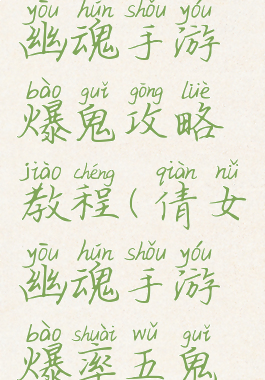 yōu hún shǒu yóu
幽魂手游
bào guǐ gōng lüè
爆鬼攻略
jiào chéng qiàn nǚ
教程(倩女
yōu hún shǒu yóu
幽魂手游
bào shuài wǔ guǐ
爆率五鬼